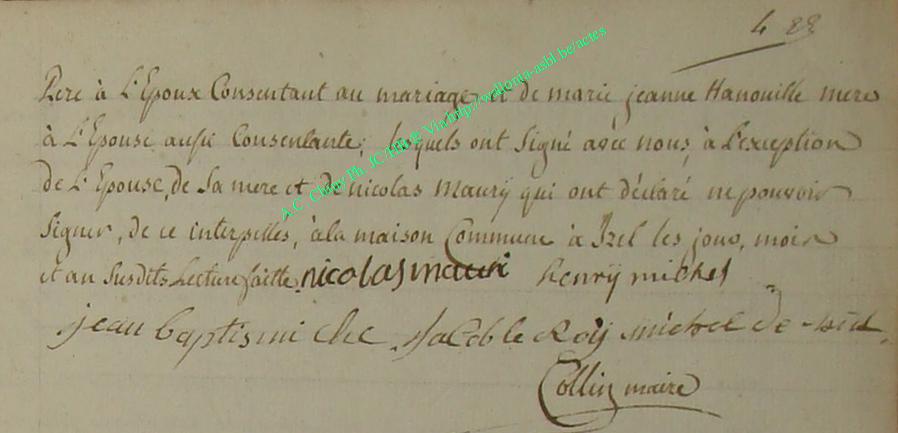 4 88
Pere à L'Epoux Consentant au mariage, et de marie jeanne Hanouille mere
à L'Epouse aussi Consentante; lesquels ont Signé avec nous, à l'exception
de L'Epouse, de Sa mere et de nicolas maury qui ont déclaré ne pouvoir
Signer, de ce interpelles, à la maison Commune à Izel les jour, mois
et an Susdits Lecture faitte. nicolas mauri henrÿ michel
jean baptis michel Jacob le Roÿ michel de
Collin maire
A.C Chiny Ph. JC/HB & Via http://wallonia-asbl.be/actes